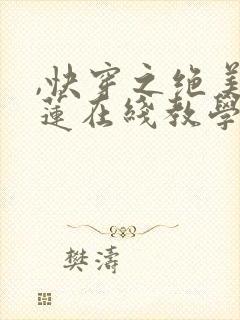 ,快穿之绝美
莲在线教学
樊涛